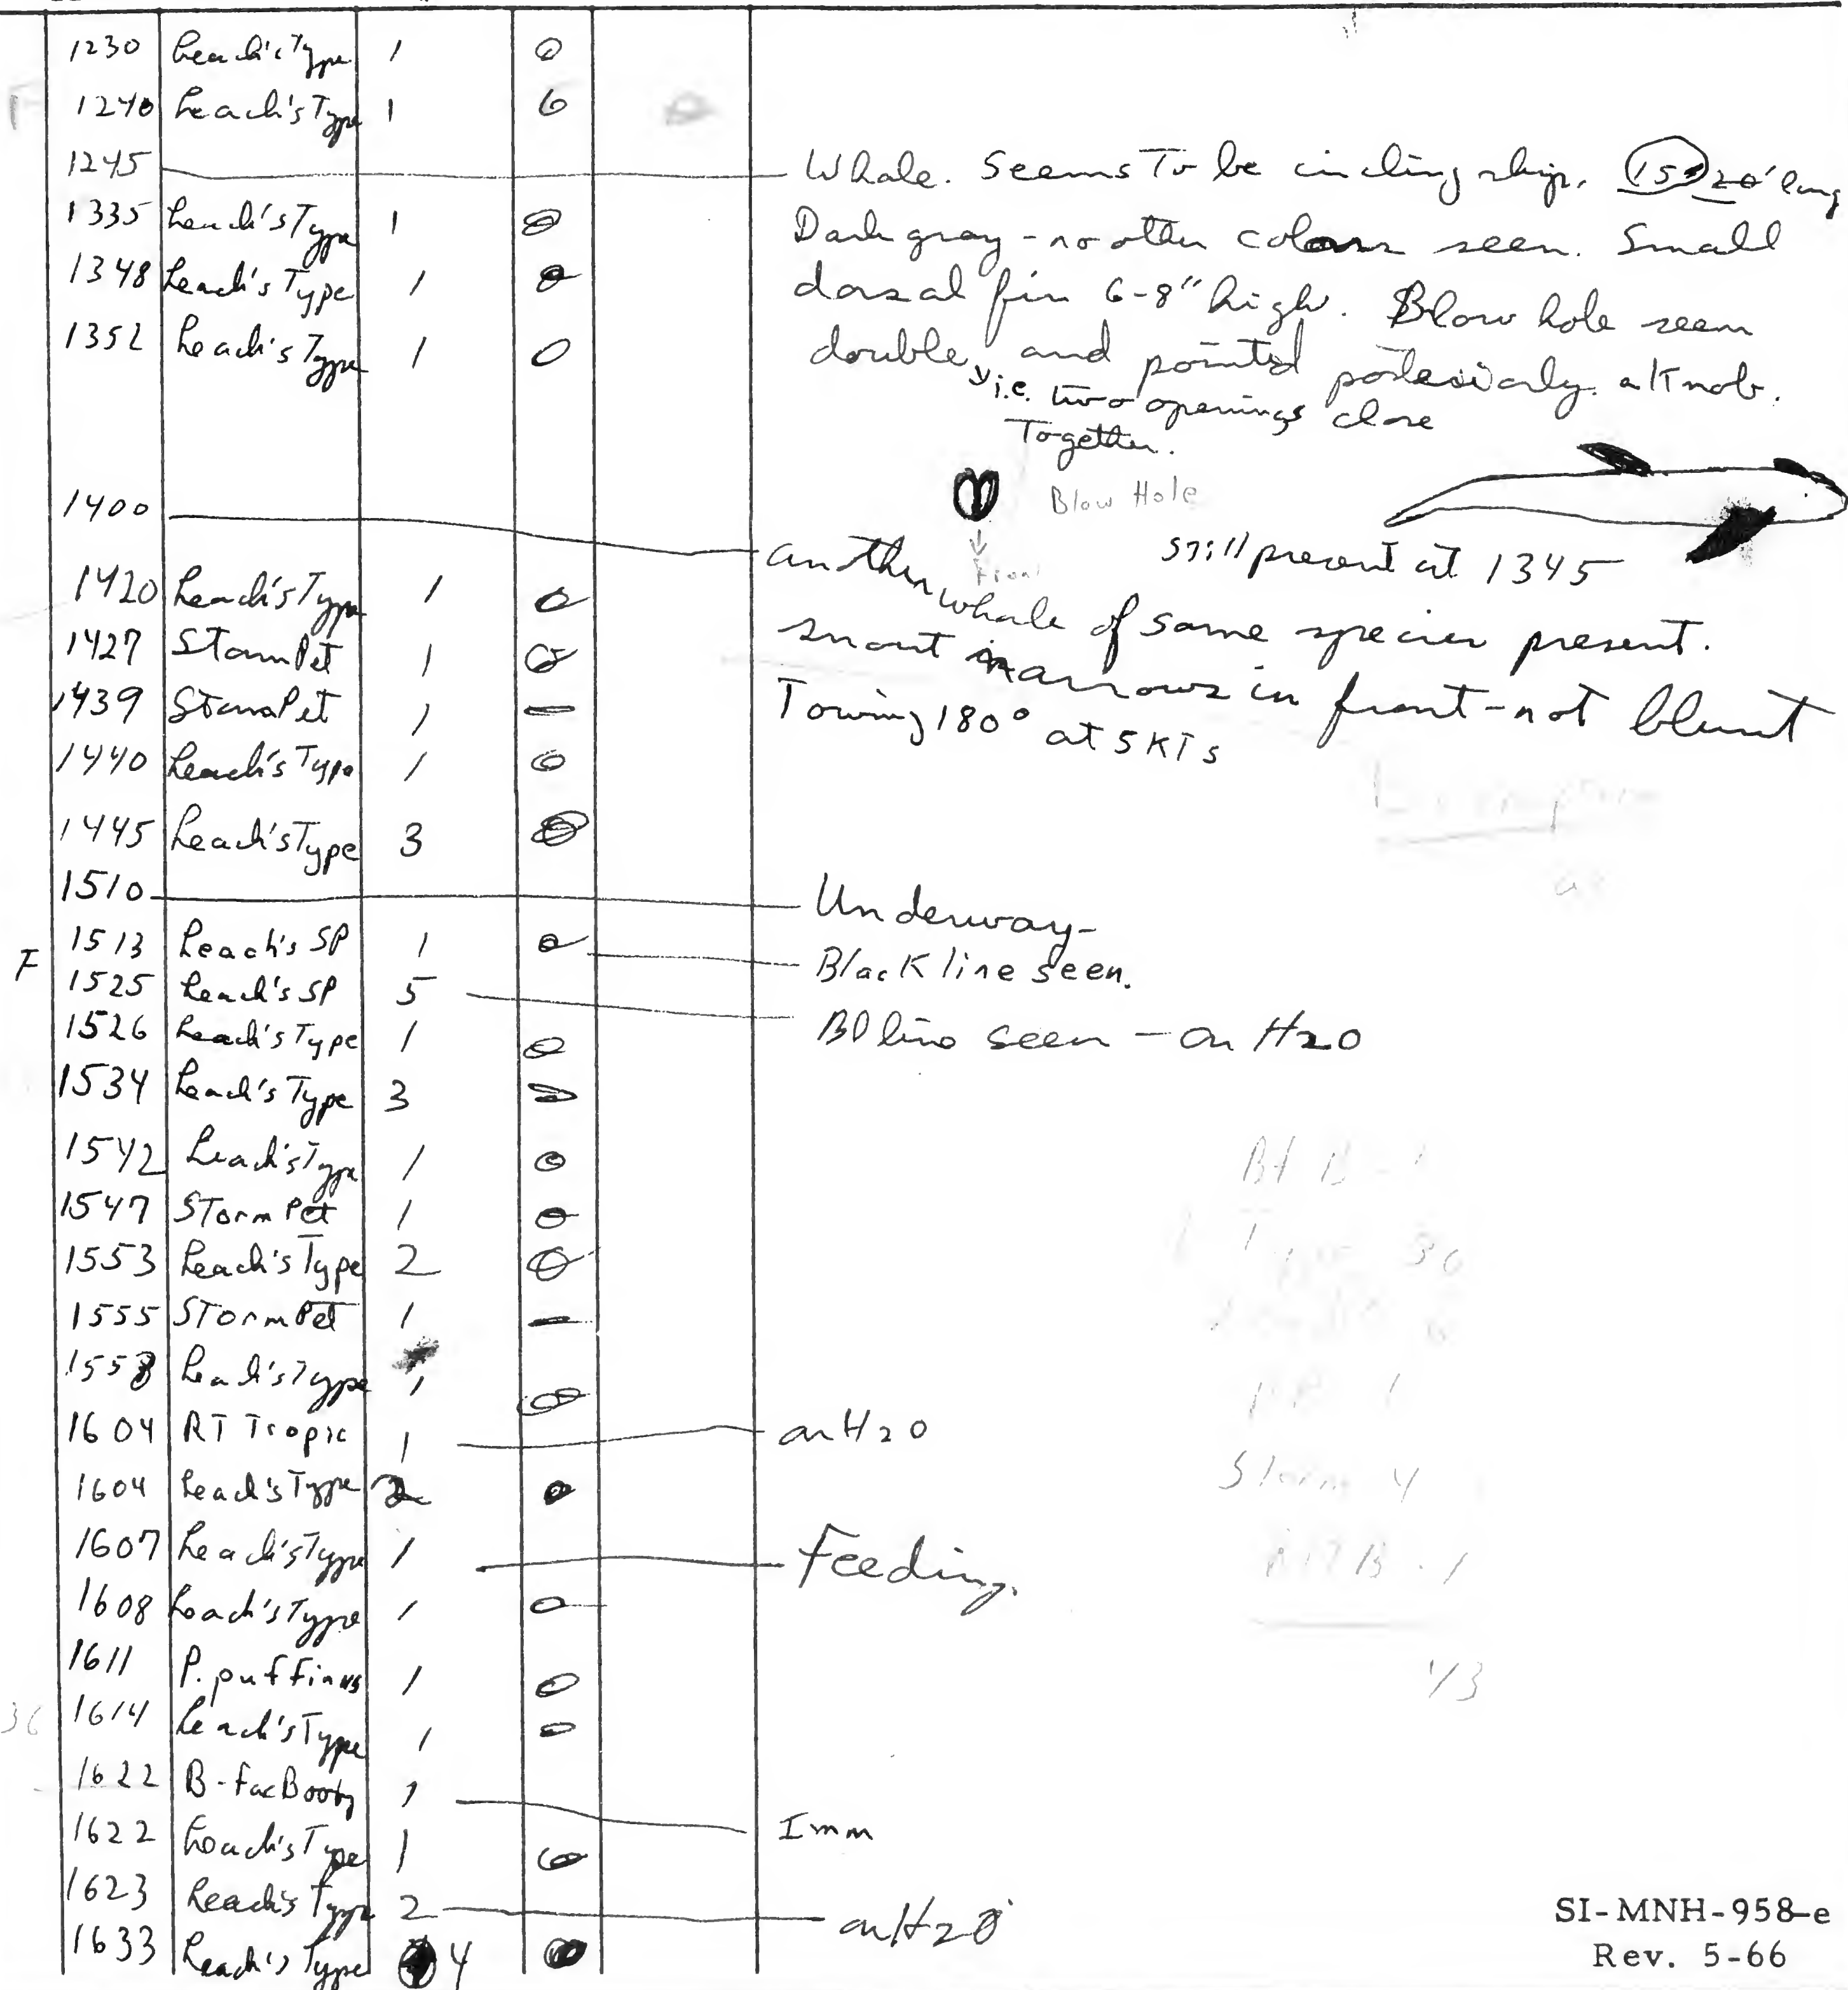 1230 Leach's Type 1 0
1240 Leach's Type 1 0
1245 Whale. Seems To be circling ship. 15-20' long
1335 Leach's Type 1 0
Dark gray - no other colors seen. Small
1348 Leach's Type 1 0
dorsal fin 6-8" high. Blow hole seem
1352 Leach's Type 1 0
double, and pointed posteriorly. a Knob.
i.e. two openings close
Together.
Blow Hole
Front
still present at 1345
1400 another whale of same species present.
snout narrows in front - not blunt
Towing 180° at 5 KTs
1420 Leach's Type 1 0
1427 Storm Pet 1 0
1439 Storm Pet 1 —
1440 Leach's Type 1 0
1445 Leach's Type 3 0
1510 Underway -
F 1513 Leach's SP 1 0 Black line seen.
1525 Leach's SP 5 Bl line seen - on H2O
1526 Leach's Type 1 0
1534 Leach's Type 3
1542 Leach's Type 1 0
1547 Storm Pet 1 0
1553 Leach's Type 2 0
1555 Storm Pet 1 —
1558 Leach's Type 1 0
1604 RT Tropic 1 on H2O
1604 Leach's Type 2 0
1607 Leach's Type 1 Feeding.
1608 Leach's Type 1 0
1611 P. puffinus 1 0
36 1614 Leach's Type 1 0
1622 B-fac Booby 1 Imm
1622 Leach's Type 1 0
1623 Leach's Type 2 on H2O
1633 Leach's Type 4
Type 30
Storm 4
43
SI-MNH-958-e
Rev. 5-66